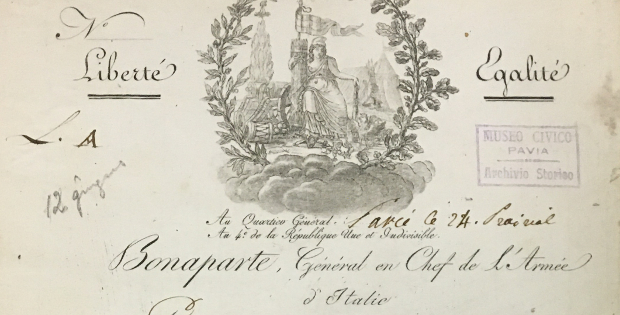 N
Liberté Egalité
L. A
12 giugno
MUSEO CIVICO
PAVIA
Archivio Storico
Au Quartier Général. Pavie le 24. Prairial
An 4e de la République Une et Indivisible.
Bonaparte, Général en Chef de L'Armée
d'Italie